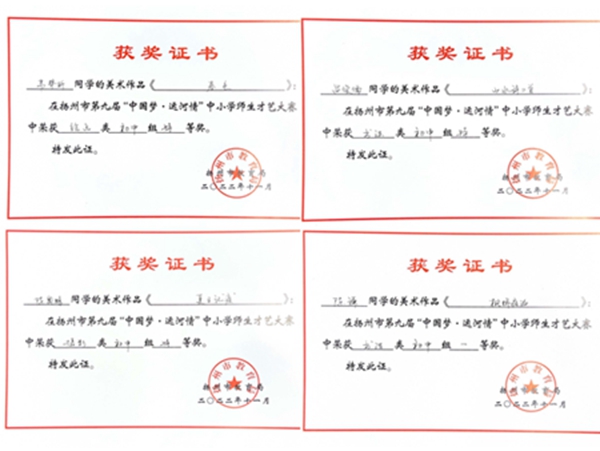 获奖证书
同学的美术作品《 》：
在扬州市第九届“中国梦·运河情”中小学师生才艺大赛
中荣获 类 初中 级 特 等奖。
特发此证。
扬州市教育局
二〇二二年十一月
获奖证书
同学的美术作品《 》：
在扬州市第九届“中国梦·运河情”中小学师生才艺大赛
中荣获 书法 类 初中 级 特 等奖。
特发此证。
扬州市教育局
二〇二二年十一月
获奖证书
同学的美术作品《 》：
在扬州市第九届“中国梦·运河情”中小学师生才艺大赛
中荣获 类 初中 级 特 等奖。
特发此证。
扬州市教育局
二〇二二年十一月
获奖证书
同学的美术作品《 》：
在扬州市第九届“中国梦·运河情”中小学师生才艺大赛
中荣获 书法 类 初中 级 一 等奖。
特发此证。
扬州市教育局
二〇二二年十一月